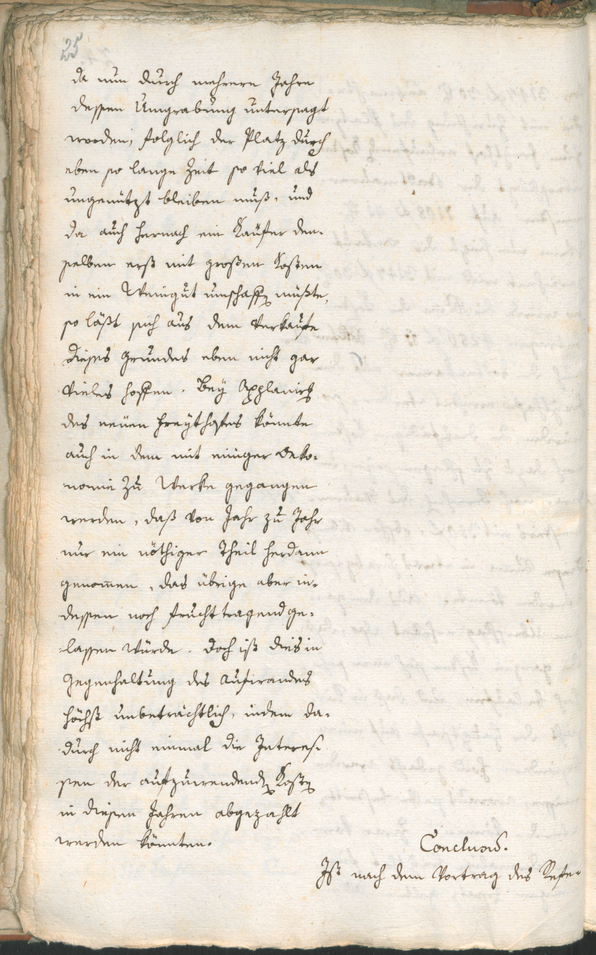 25
da nun durch mehrere Jahre
dessen Umgrabung untersagt
worden, folglich der Platz durch
eben so lange Zeit so viel als
ungenützt bleiben muß, und
da auch hernach ein Kaüfer den-
selben erst mit großen Kosten
in ein Weingut umschaffen müßte,
so läßt sich aus dem Verkaufe
dieses Grundes eben nicht gar
vieles hoffen. Bey
des neuen Freythofes könnte
auch in dem mit einiger Oeko-
nomie zu Werke gegangen
werden, daß von Jahr zu Jahr
nur ein nöthiger Theil herdann
genommen, das übrige aber in-
dessen noch fruchttragend ge-
lassen würde. Doch ist dies in
Gegenhaltung des Aufwandes
höchst unbeträchtlich, indem da-
durch nicht einmal die Interes-
sen der aufzuwendenden Kosten
in diesen Jahren abgezahlt
werden könnten.
Conclusum.
Ist nach dem Vortrag des Refe-